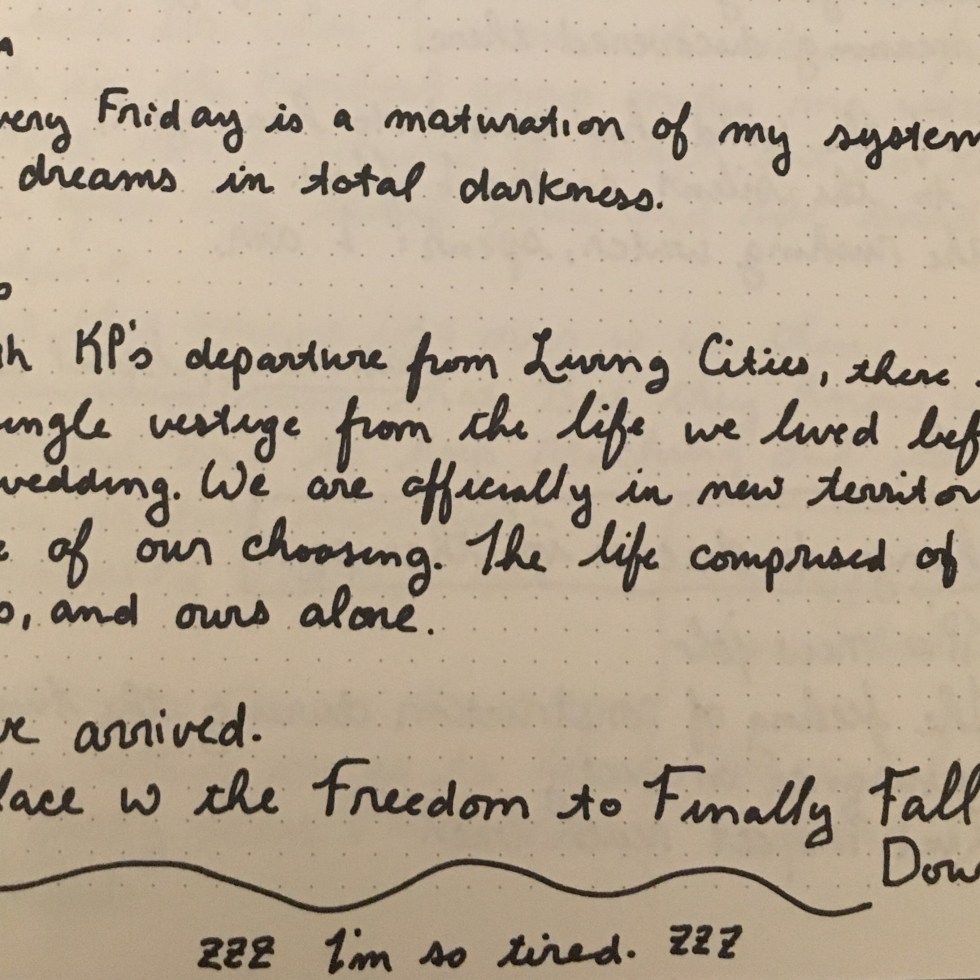 very Friday is a maturation of my system
dreams in total darkness.
th KP's departure from Living Cities, there
ingle vestige from the life we lived bef
wedding. We are officially in new territor
e of our choosing. The life comprised of
s, and ours alone.
ve arrived.
lace w the Freedom to Finally Fall
Dow
zzz I'm so tired. zzz